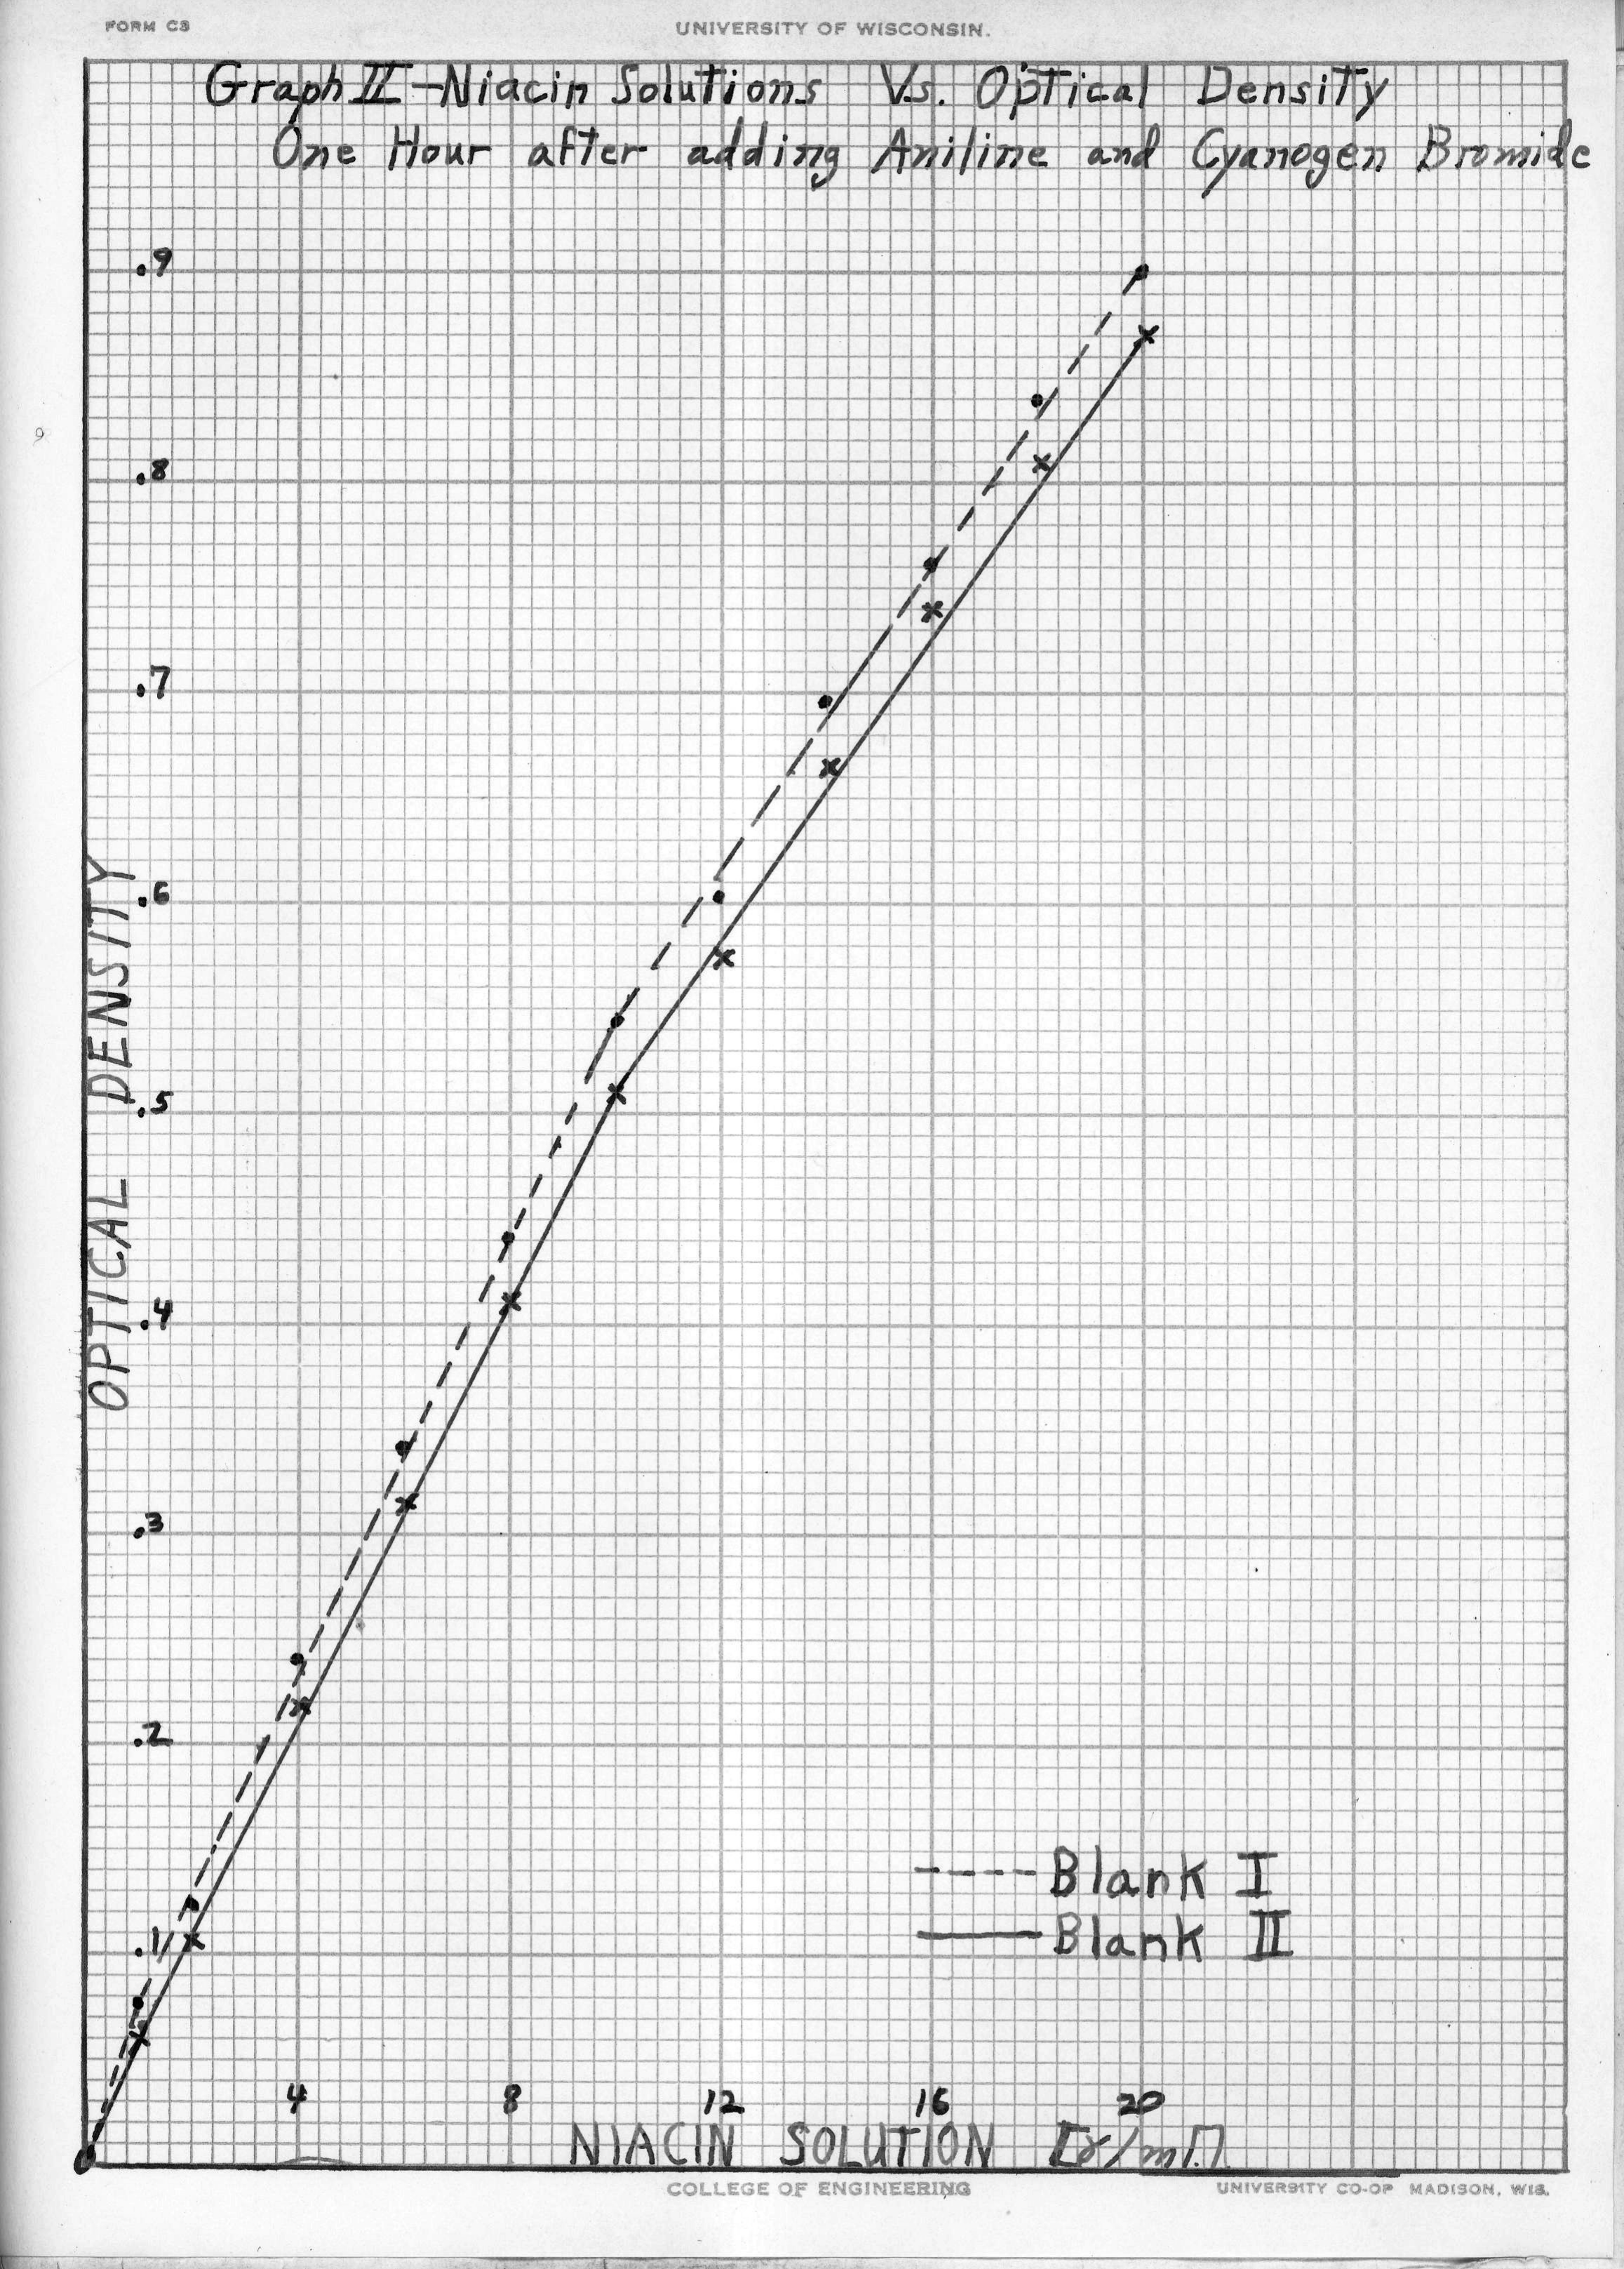 FORM C3
UNIVERSITY OF WISCONSIN.
Graph II - Niacin Solutions Vs. Optical Density
One Hour after adding Aniline and Cyanogen Bromide
.9
.8
.7
.6
.5
.4
.3
.2
.1
OPTICAL DENSITY
Blank I
Blank II
4 8 12 16 20
NIACIN SOLUTION [γ/ml.]
COLLEGE OF ENGINEERING
UNIVERSITY CO-OP MADISON, WIS.